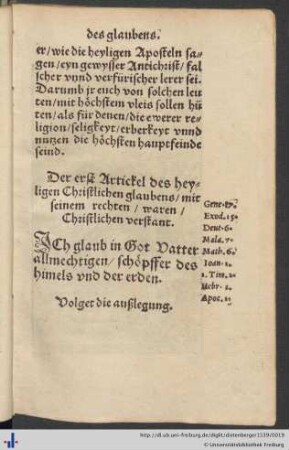 des glaubens.
er/wie die heyligen Aposteln sa-
gen/eyn gewysser Antichrist/fal
scher vnnd verfürischer lerer sei.
Darumb jr euch von solchen leu
ten/mit höchstem vleis sollen hü
ten/als für denen/die ewerer re-
ligion/seligkeyt/erberkeyt vnnd
nutzen die höchsten hauptfeinde
seind.
Der erst Artickel des hey-
ligen Christlichen glaubens/mit
seinem rechten/waren/
Christlichen verstant.
ICh glaub in Got Vatter
allmechtigen/schöpffer des
himels vnd der erden.
Volget die außlegung.
Gene.
Exod.
Deut.6.
Mala.
Math.6.
Ioan.
1.Tim.
Hebr.
Apoc.
http://dl.ub.uni-freiburg.de/diglit/dietenberger1539/0019
© Universitätsbibliothek Freiburg